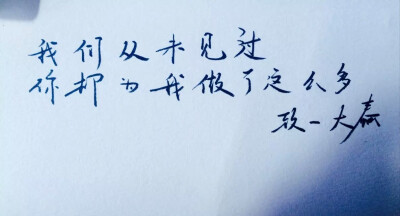 我们从未见过
你却为我做了这么多
致一大